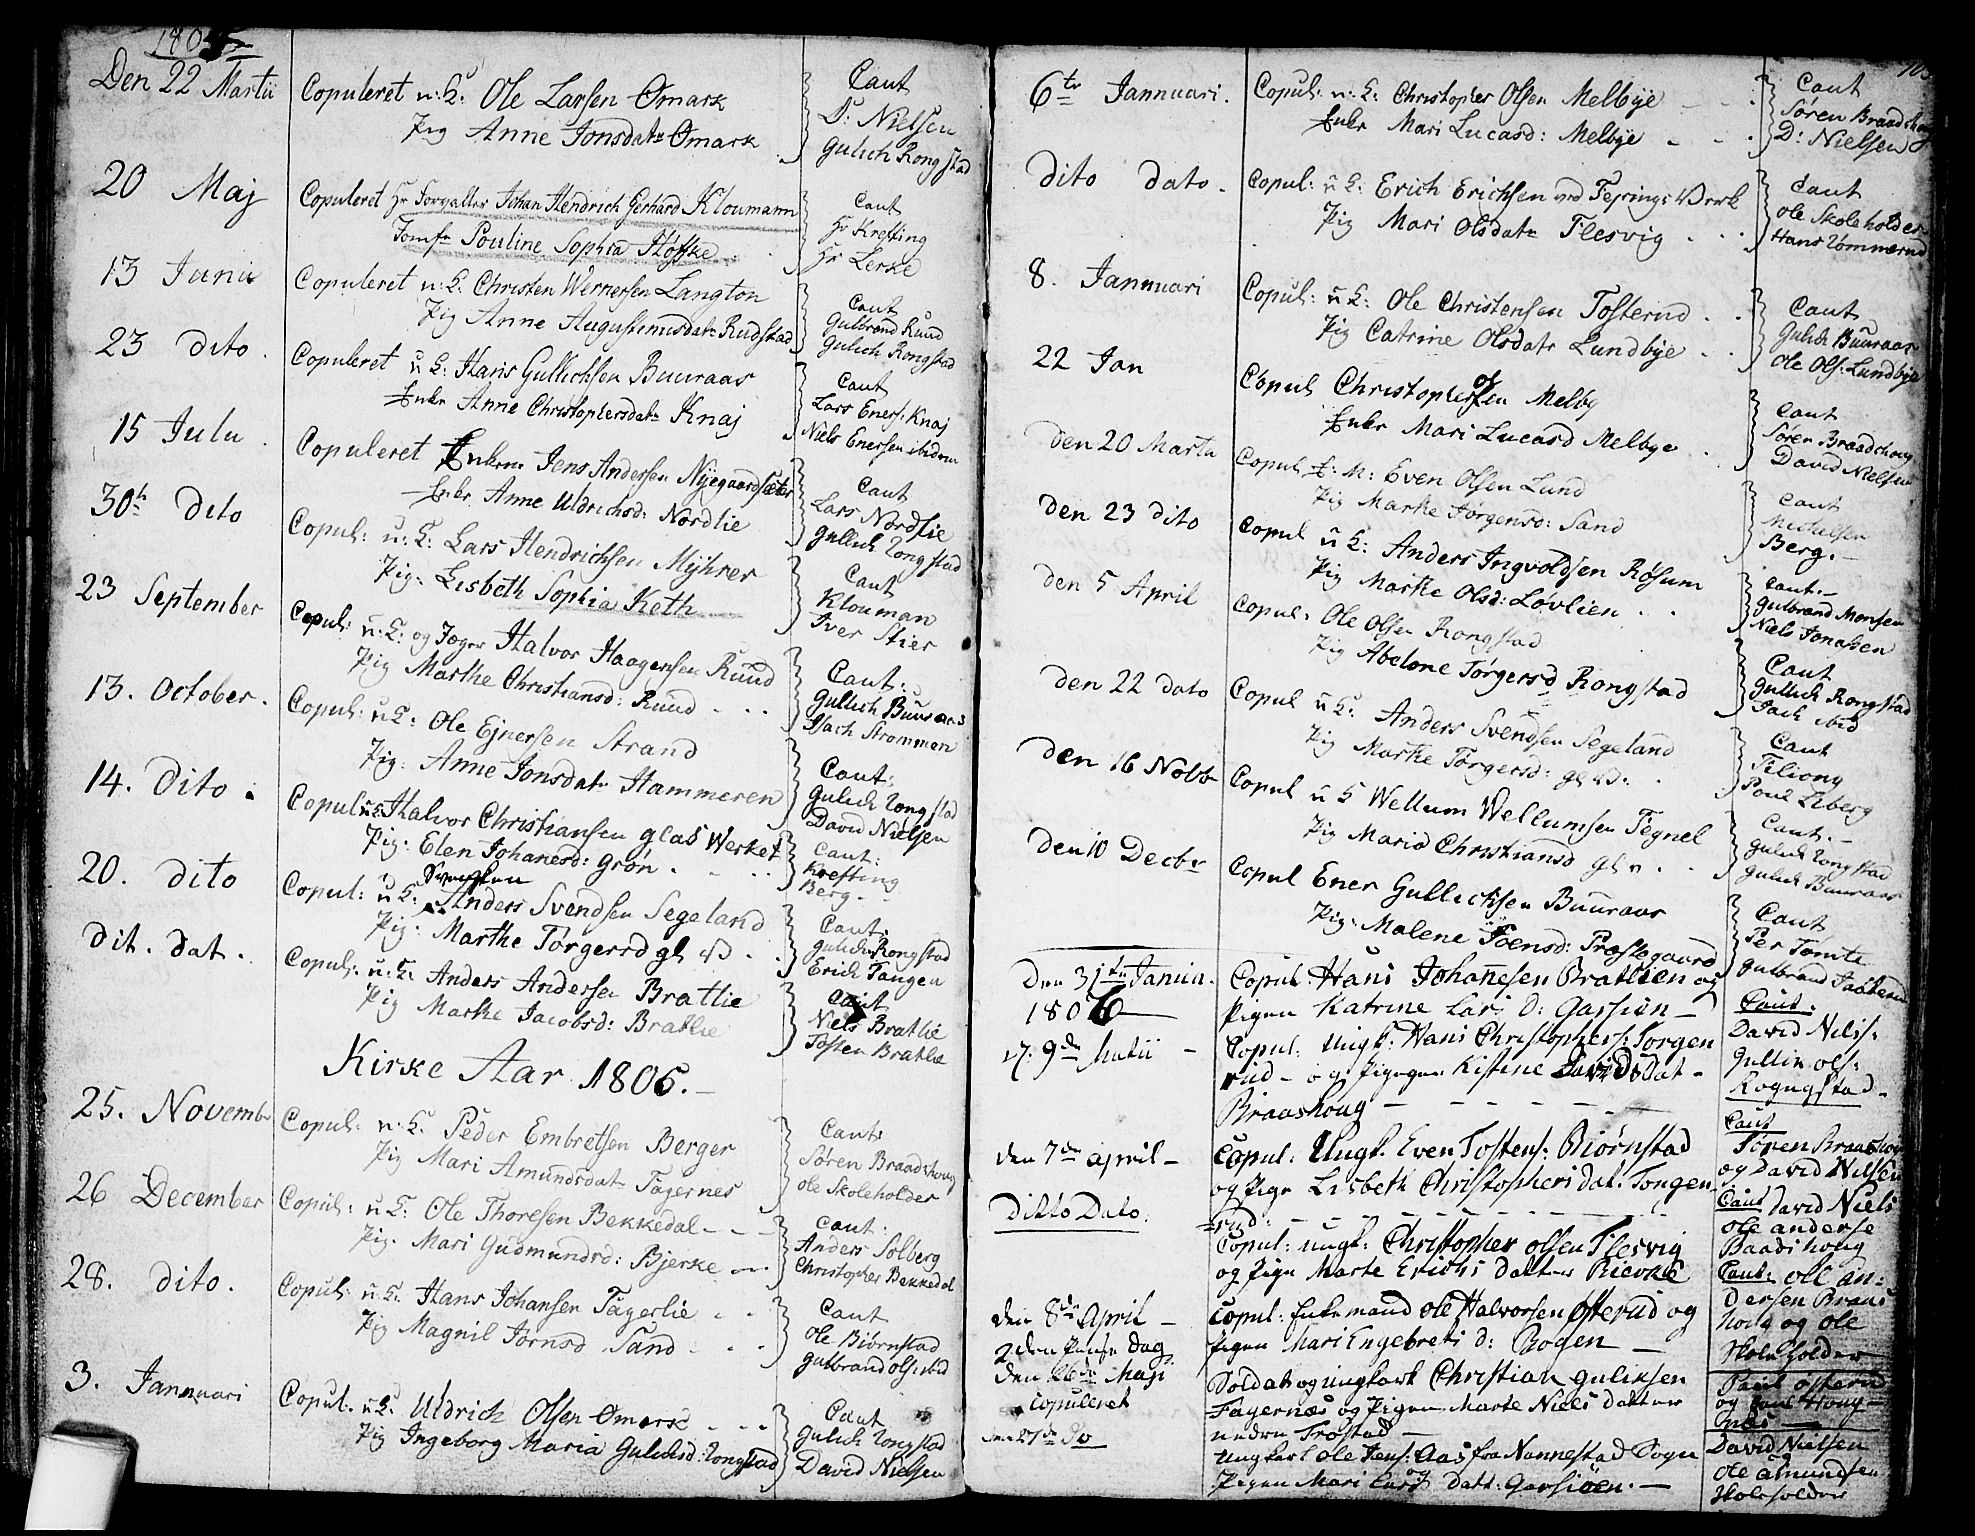 1805
Den 22 Martii Copuleret u: K: Ole Larsen Omark Caut
Pig Anne Jonsdatr Omark D: Nielsen
Gulich Rongstad
20 Maj Copuleret Hr Forvalter Johan Hendrich Gerhard Kloumann Caut
Jomfr Pouline Sophia Høffke Hr Krefting
Hr Lerke
13 Junii Copuleret u: K: Christen Wernersen Langton Caut
Pig Anne Augustinusdatr Rudstad Gulbrand Ruud
Gulich Rongstad
23 dito. Copuleret u K: Hans Gullichsen Buuraas Caut
Enkr Anne Christophersdatr Knaj Lars Eners: Knaj
Niels Enersen ibidem
15 Julii. Copuleret Enkem Jens Andersen Nyegaardsæter Caut
Enkr Anne Uldrichsd: Nordlie Lars Nordlie
Gullich Rongstad
30te dito Copul: u: K: Lars Hendrichsen Myhrer Caut
Pig: Lisbeth Sophia Keth Klouman
Iver Stier
23 September Copul: u: K: og Jæger Halvor Haagensen Ruud Caut:
Pig Marthe Christiansd: Ruud Gullich Buuraas
Isach Strømmen
13. October. Copul: u: K: Ole Ejnersen Strand Caut:
Pig: Anne Jonsdatr Hammeren Gulich Rongstad
David Nielsen
14. Dito. Copul: u: K: Halvor Christiansen glas Werket Caut:
Pig: Elen Johanesd: Grøn. Krefting
Berg.
20. dito Copul: u: K: Anders Svendsen Segeland Caut:
Pig: Marthe Tørgersd gl W. Gulich Rongstad
Erich Tangen
dit. dat. Copul: u: K: Anders Andersen Bratlie Caut
Pig Marthe Jacobsd: Bratlie Niels Bratlie
Tosten Bratlie
Kirke Aar 1806.
25. Novembr Copul: u: K: Peder Embretsen Berger Caut:
Pig Mari Amundsdatr Fagernes Søren Braadshoug
ole Skoleholder
26 December Copul: u: K: Ole Thoresen Bekkedal Caut:
Pig: Mari Gudmundsd: Bjerke Anders Solberg
Christopher Bekkedal
28. dito. Copul: u: K: Hans Johansen Fagerlie Caut
Pig Magnil Jørnsd Sand Ole Biørnstad
Gulbrand Ols: ibid
3. Jannuari Copul. u: K: Uldrich Olsen Omark Caut
Pig Ingeborg Maria Gulichsd: Rongstad Gulich Rongstad
David Nielsen
6te Jannuari. Copul: u: K: Christopher Olsen Melbye Caut
Enkr Mari Lucasd: Melbye Søren Braadshoug
D: Nielsen
dito dato. Copul: u K: Erich Erichsen ved Fejrings Werk Caut
Pig Mari Olsdatr Flesvig ole Skoleholder
Hans Tømmerud
8. Jannuari Copul: u K: Ole Christensen Tosterud Caut
Pig Catrine Olsdatr Lundbye Gulich Buuraas
Ole Ols: Lundbye
22 Jan Copul Christopher Olsen Melby Caut
Enkr Mari Lucasd Melbye Søren Braadshoug
David Nielsen
den 20 Martii Copul E: M: Even Olsen Lund Caut
Pig Marthe Jørgensd: Sand
Berg.
den 23 dito Copul u K: Anders Ingvoldsen Røsum Caut.
Pig Marthe Olsd: Løvlien Gulbrand Monsen
Niels Jonassen
den 5 April Copul. Ole Olsen Rongstad Caut
Pig Abelone Tørgersd Rongstad Gullich Rongstad
Jach ibid
den 22 dato Copul u K: Anders Svendsen Segeland Caut
Pig Marthe Tørgersd: gl W: Filiong
Poul Leberg
den 16 Novbr Copul u K Wellum Wellumsen Tegnel Caut.
Pig Maria Christiansd gl W Gulich Rongstad
Gulich Buuraas
den 10 Decbr Copul Ener Gullichsen Buuraas Caut
Pig: Malene Joensd: Præstegaard Per Tømte
Gulbrand
Den 31te Janua. Copul: Hans Johanesen Bratlien og Caut:
1806 Pigen Katrine Lars D: Garsiøen David Nils:
9de Martii Copul: ungk: Hans Christophers: Torgen Gullik ols:
rud og Pigen Kistine Davids Dat Rognstad
Braashoug
den 7de april Copul: Ungk. Even Tostens: Biørnstad Caut
og Pign Lisbeth Christophers dat: Tongen Søren Braashoug
rud: og David Nilsen
Ditto Dato. Copul: ungk: Christopher olsen Flesvig Caut David Niels
og Pign Marte Erichs datter ole anderse
Baadshoug
den 8de April Copul: Enkemand ole Halvorsen Østerud og Caut: ole an:
2den Paaske Dag Pigen Mari Engebrets d: Bogen dersen Braas
houg og ole
Skoleholder
den 26de Maji Soldat og ungkarl Christian guliksen
copuleret Fagernæs og Pigen Marte Niels datter
nedre Trøstad
den 27de Do Ungkarl ole Jens: Aas fra Nannestad Sogn David Nielsen
Pigen Mari Lars Datt: Garsiöen. ole amundsen
Skoleholder